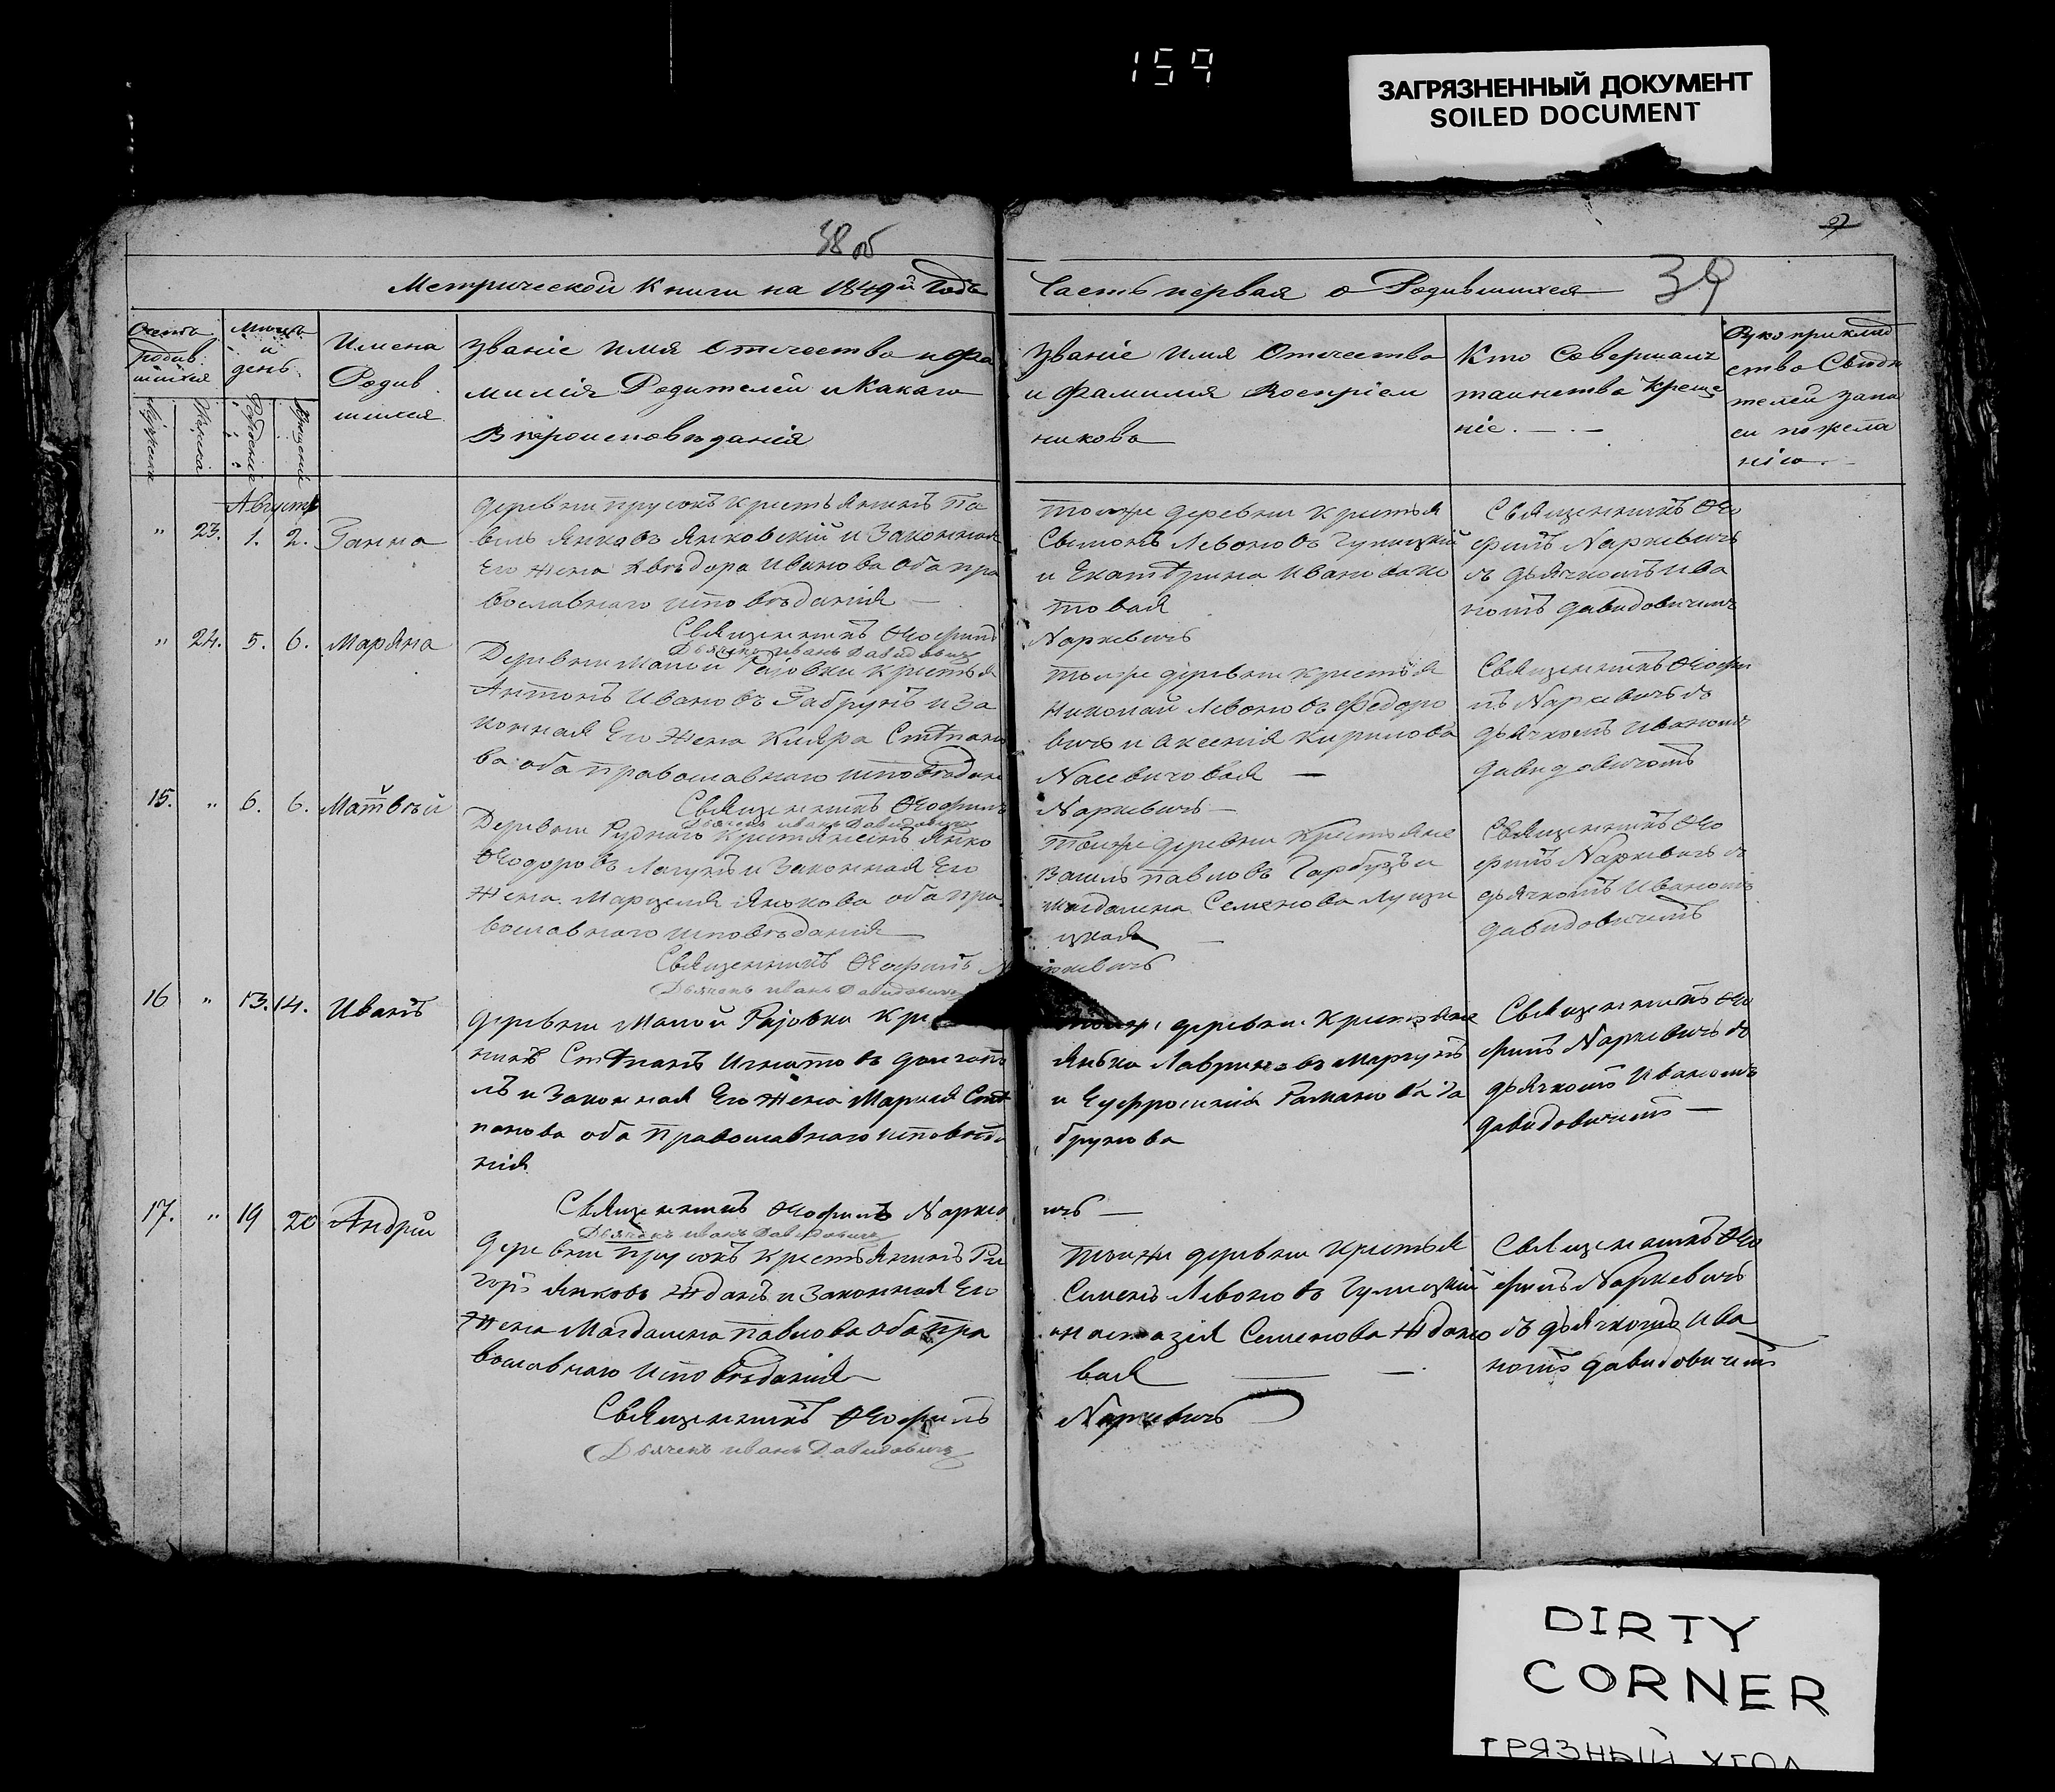 159
ЗАГРЯЗНЕННЫЙ ДОКУМЕНТ
SOILED DOCUMENT
38 об
Метрической Книги на 1849й Годъ
Часть первая о Родившихся
39
Имена
Родив
шихся
Мѣсяцъ
и
день
Званіе имя Отчество и Фа
милія Родителей и Какаго
Вѣроисповѣданія
Званіе имя Отчество
и Фамилія Воспріем
никовъ
Кто Совершалъ
таинство Креще
ніе.
Рукоприклад
ство Свидѣ
телей запи
си по жела
нію.
Августъ
" 23. 1. 2. Ганна
деревни Прусокъ Крестьянинъ Па
велъ Янковъ Янковскій и Законная
Его Жена Авгѣдора Иванова оба пра
вославнаго исповѣданія
Священникъ Ѳеофилъ
Дьячекъ Иванъ Давидовичъ
тойже деревни Крестья
Сымонъ Левоновъ
и Екатѣрина Иванова
товая
Наркевичъ
Священникъ Ѳео
филъ Наркевичъ
съ дьячкомъ Ива
номъ Давидовичемъ
" 24. 5. 6. Марьяна
Деревни Малой Раіовки Крестья
Антонъ Ивановъ Габрукъ и За
конная Его Жена Кляра Стѣпано
ва оба Православнаго исповѣдан
Священникъ Ѳеофилъ
Дьячекъ Иванъ Давидовичъ
тойже деревни Крестья
Николай Левоновъ Федоро
вичъ и Аксенія Кирилова
Наркевичъ
Священникъ Ѳеофи
лъ Наркевичъ съ
дьячкомъ Иваномъ
Давидовичемъ
15. " 6. 6. Матвѣй
Деревни Крестьянинъ Янко
Ѳеодоровъ и Законная Его
Жена Марцеля Янкова оба пра
вославнаго исповѣданія
Священникъ Ѳеофилъ Наркевичъ
Дьячекъ Иванъ Давидовичъ
Тойже деревни Крестьяне
Василь Павловъ Гарбузъ и
Магдалена Семенова Лущи
цкая
Священникъ Ѳео
филъ Наркевичъ съ
дьячкомъ Иваномъ
Давидовичемъ
16 " 13. 14. Иванъ
деревни Малой Раіовки
Стѣпанъ Игнатовъ
и Законная Его Жена Марія Стѣ
панова оба Православнаго исповѣда
нія
Священникъ Ѳеофилъ Наркев
ичъ
Дьячекъ Иванъ Давидовичъ
деревни Крестьяне
Лавриновъ
и Ефросинія Раманова Га
брукова
Священникъ Ѳео
филъ Наркевичъ съ
дьячкомъ Иваномъ
Давидовичемъ
17. " 19 20 Андрій
деревни Прусокъ Крестьянинъ Ри
горъ Янковъ Жданъ и Законная Его
Жена Магдалена Павлова оба пра
вославнаго исповѣданія
Священникъ Ѳеофилъ
Дьячекъ Иванъ Давидовичъ
тойже деревни Крестья
Семенъ Левоновъ
Настазія Семенова Ждано
вая
Наркевичъ
Священникъ Ѳео
филъ Наркевичъ
съ дьячкомъ Ива
номъ Давидовичемъ
DIRTY
CORNER
ГРЯЗНЫЙ УГОЛ